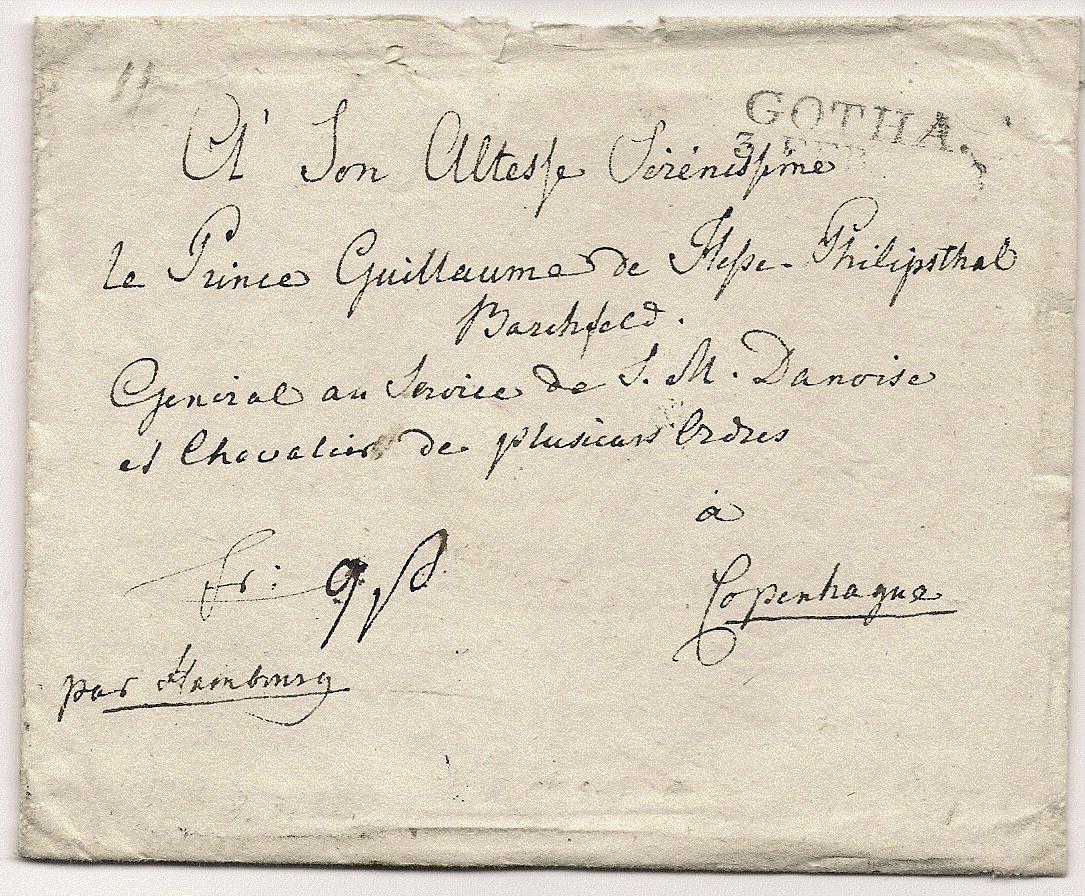 GOTHA.
3 FEB
A' Son Altesse Sérénissime
le Prince Guillaume de Hesse-Philipsthal
Barchfeld.
General au Service de S. M. Danoise
et Chevalier de plusieurs Ordres
à
Copenhague
fr: 9
par Hambourg